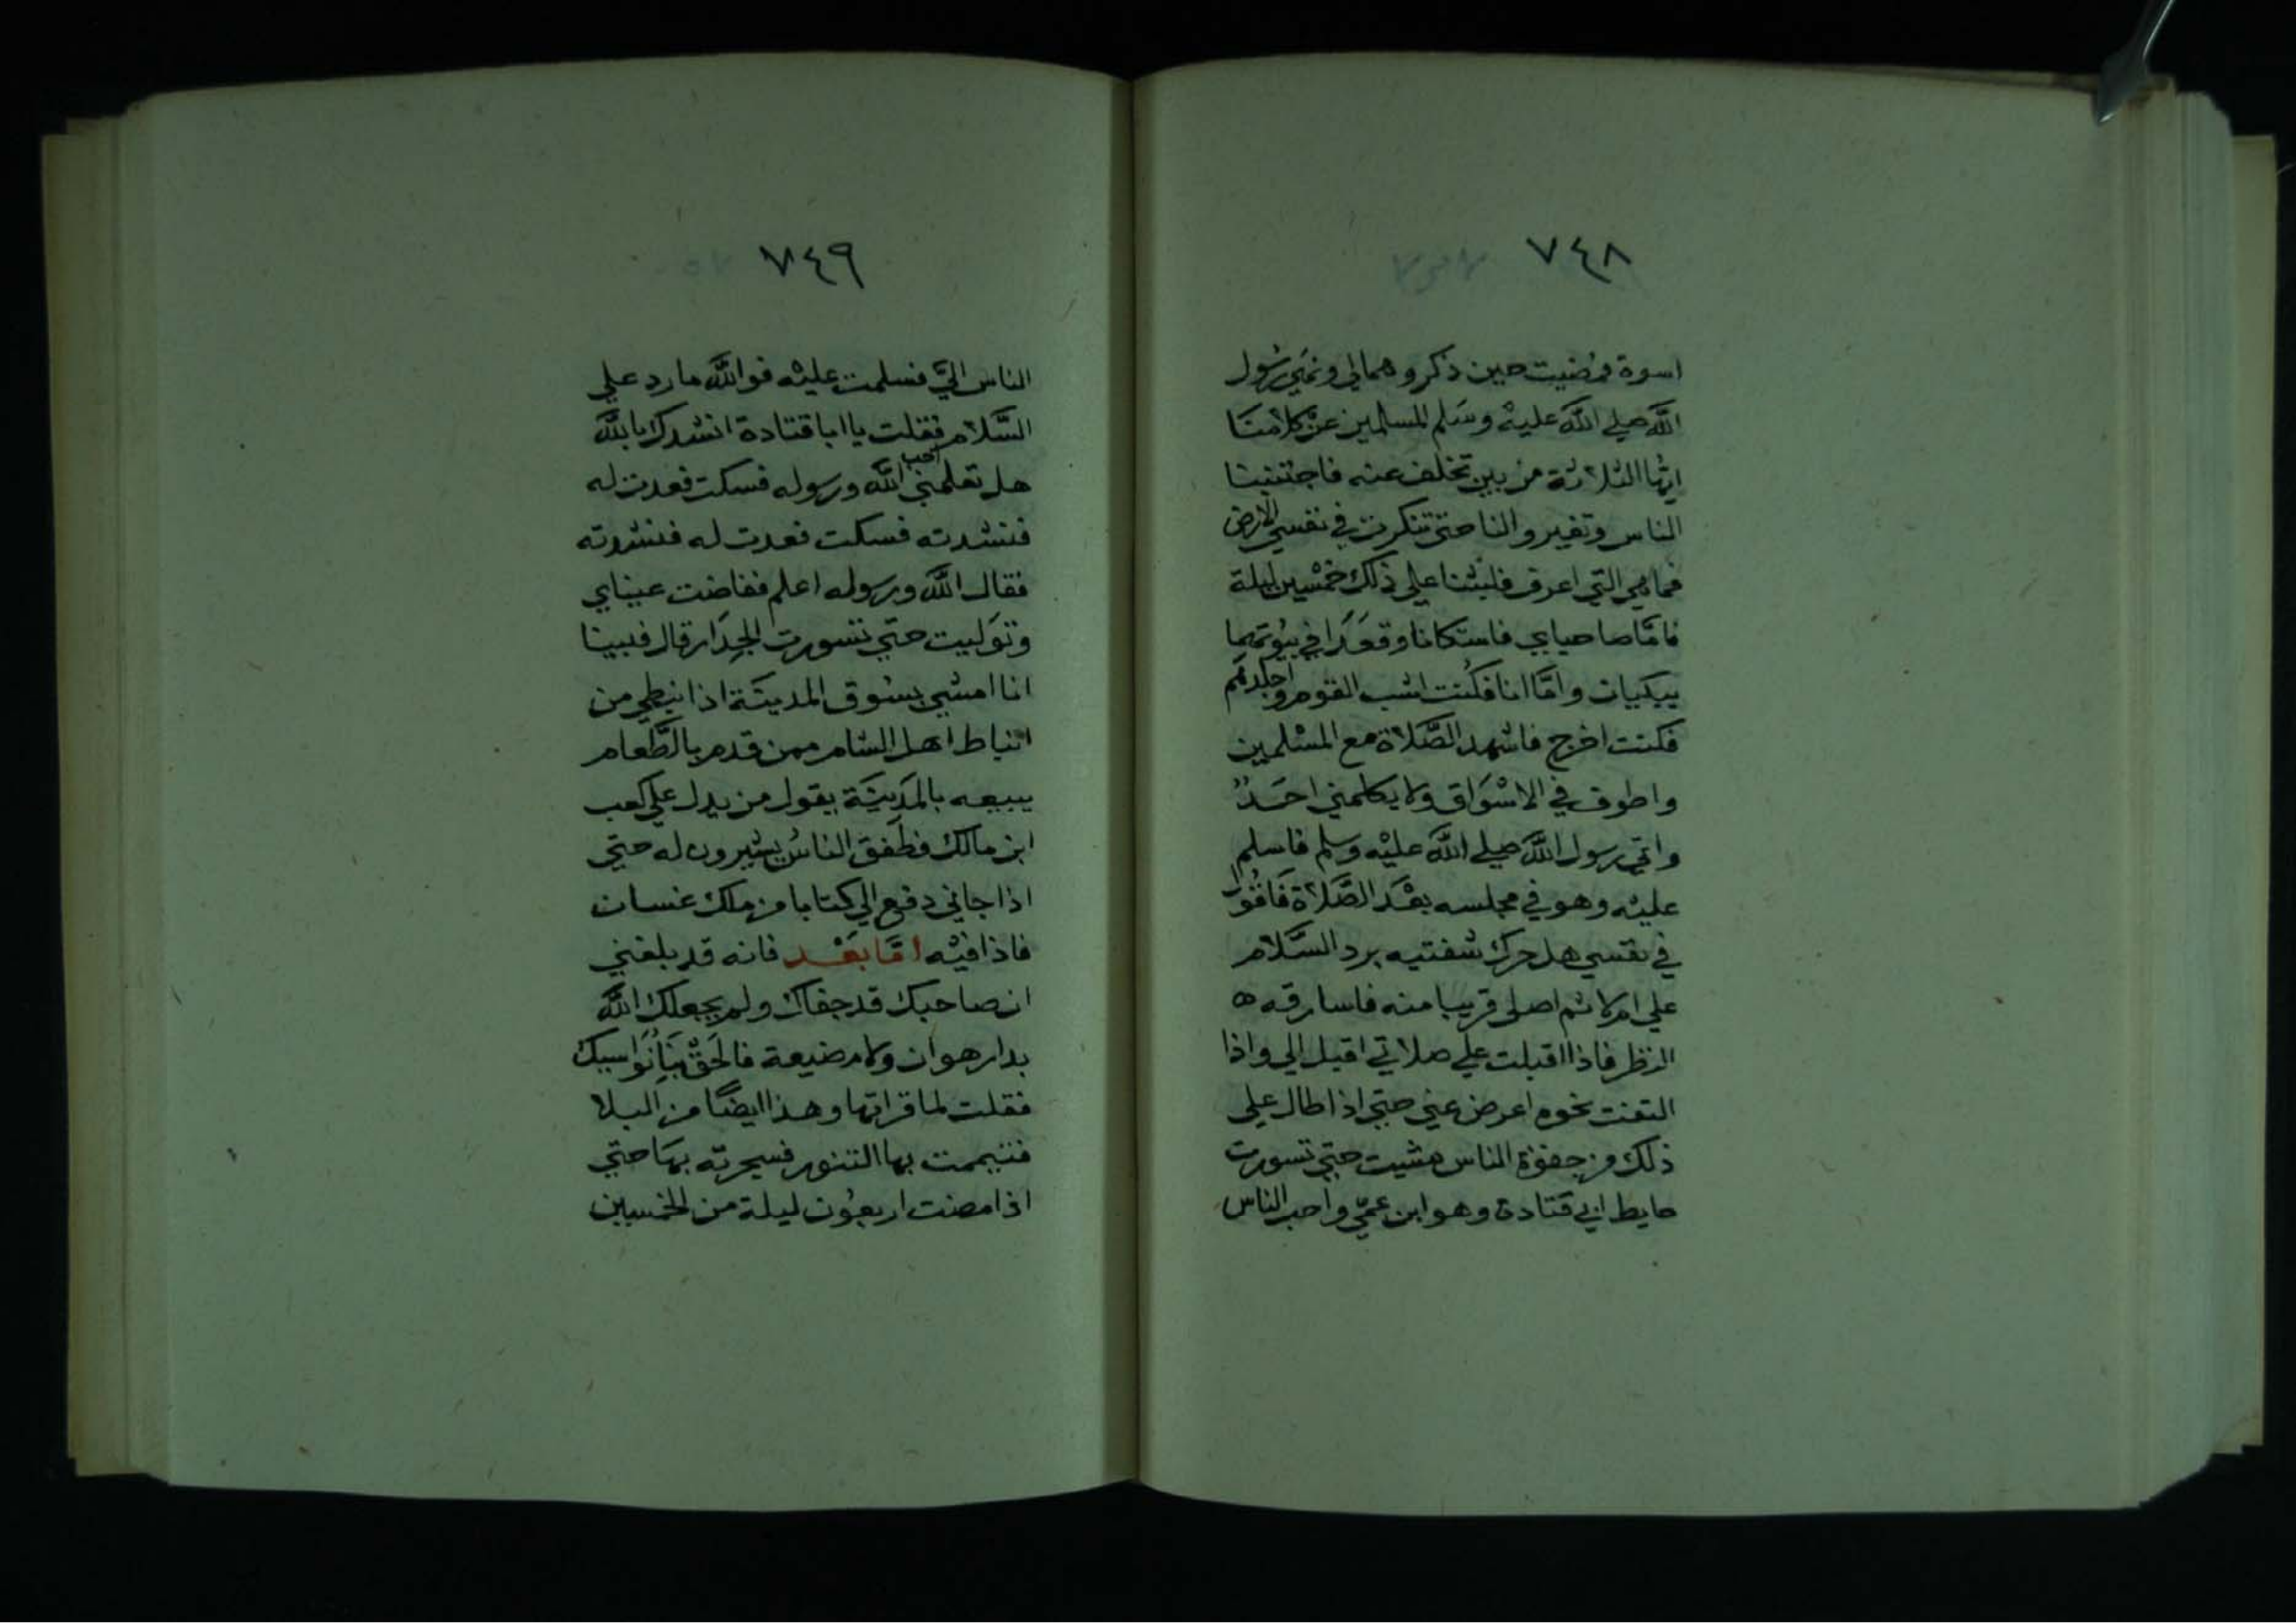 ٧٤٨
اسوة فمضيت حين ذكروهمالي ونهي رسول
الله صلي الله عليه وسلم المسلمين عن كلامنا
ايها الثلاثة من بين تخلف عنه فاجتنبنا
الناس وتغيروا لنا حتي تنكرت في نفسي الارض
فماهي التي اعرف فلبثنا علي ذلك خمسين ليلة
فامّا صاحباي فاستكانا وقعَدَا في بيُوتهما
يبكيان وامَّا انا فكنت اشب القوم واجلدهم
فكنت اخرج فاشهد الصَّلاة مع المسْلمين
واطوف في الاسْوَاق ولا يكلمني احَدٌ
واتي رسول الله صلي الله عليْه وسلم فاسلم
عليْه وهو في مجلسه بعْدَ الصَّلاة فَاقُولُ
في نفسي هل حرك شفتيه برد السَّلام
علي ام لا ثم اصلي قريبا منه فاسارقه ه
النظر فاذا اقبلت علي صلاتي اقبل الي واذا
التفت نحوه اعرض عني حتي اذا طال علي
ذلك من جفوة الناس مشيت حتي تسورت
حايط ابي قتادة وهو ابن عمّي واحب الناس
٧٤٩
الناس اليَّ فسلمت عليْه فوالله ما رد علي
السَّلام فقلت يا ابا قتادة انشدك بالله
هل تعلمني احب الله ورسوله فسكت فعدت له
فنشدته فسكت فعدت له فنشدته
فقال الله ورسوله اعلم ففاضت عيناي
وتوَليت حتي تسورت الجِدَار قال فبينا
انا امشي بسُوق المدينَة اذا نبطي من
انباط اهل الشام ممن قدم بالطَّعام
يبيعه بالمَدِينَة يقول من يدل علي كعب
ابن مالك فطَفقَ الناسُ يشيرون له حتي
اذا جاني دفع الي كتابا من ملك غسان
فاذا فيْه امَّا بَعْد فانه قد بلغني
ان صاحبك قد جفاك ولم يجعلك الله
بدار هوان ولا مضيعة فالحَقْ بنَا نُوَاسيك
فقلت لما قراتها وهذا ايضًا من البلا
فتيممت بها التنور فسجرته بهَا حتي
اذا مضت اربعُون ليلة من الخمسين